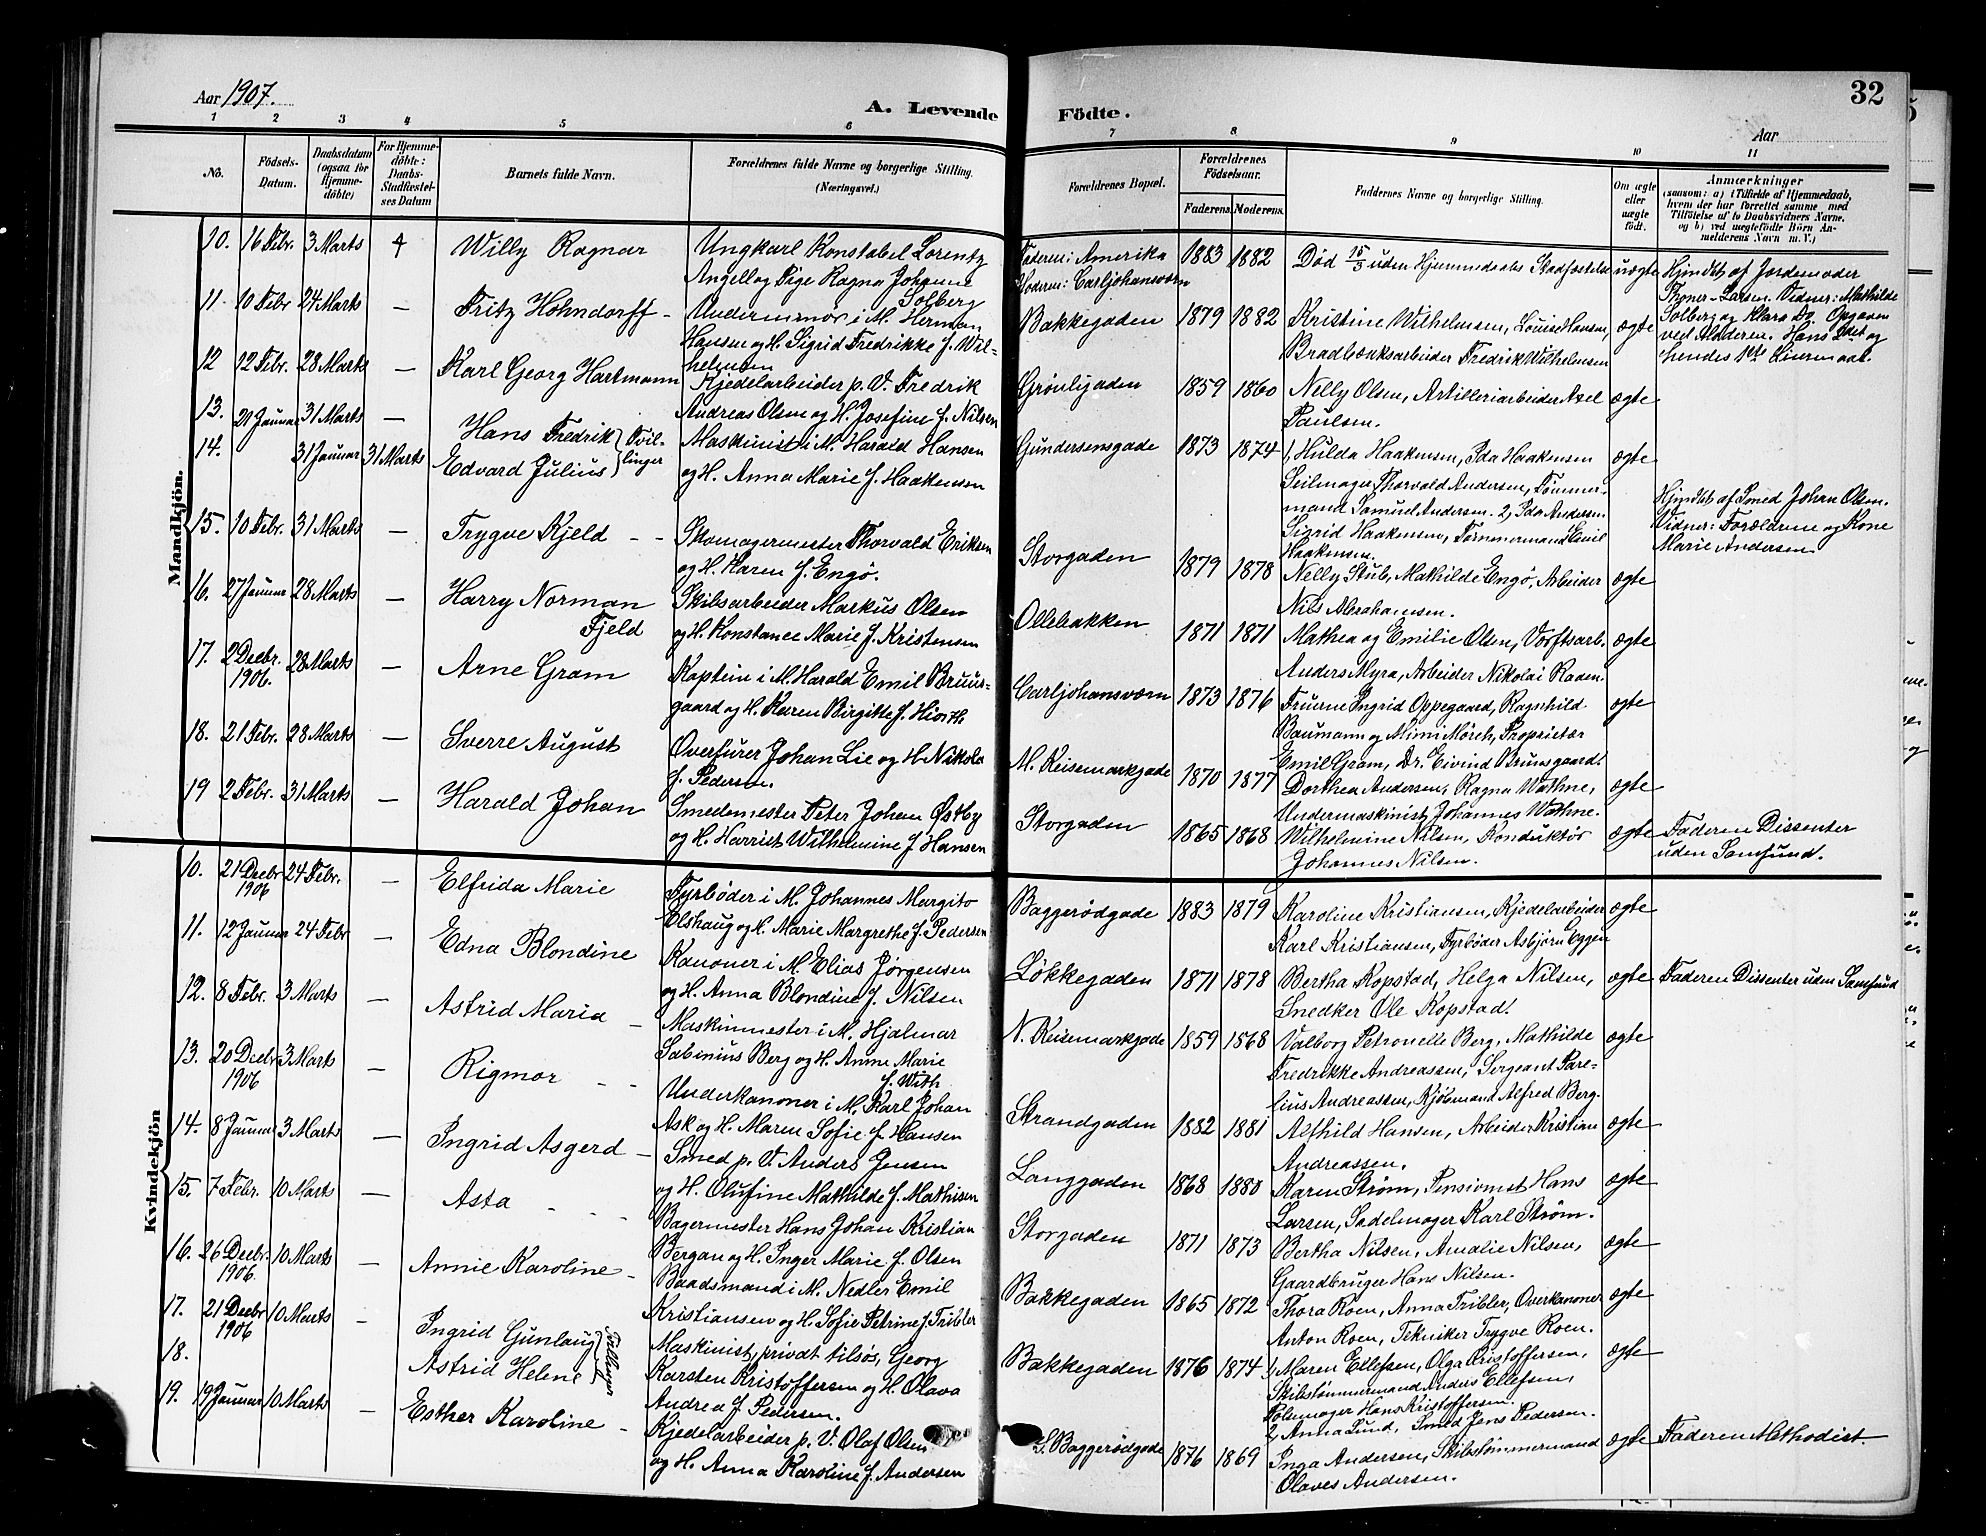 Aar 1907.
A. Levende
1 2 3 4 5 6
No.
Födsels-
Datum.
Daabsdatum
(ogsaa for
Hjemme-
döbte)
For Hjemme-
döbte:
Daabs-
Stadfæstel-
ses Datum
Barnets fulde Navn.
Forældrenes fulde Navne og borgerlige Stilling.
(Næringsvei.)
Mandkjön.
10. 16 Febr. 3 Marts Willy Ragnar Ungkarl Konstabel Lorentz
Angell og Pige Ragna Johanne
Solberg
11. 10 Febr 24 Marts — Fritz Höhndorff - Underminør i M. Herman
Hansen og H. Sigrid Fredrikke f. Wil-
helmsen
12 12 Febr. 28 Marts — Karl Georg Hartmann Kjedelarbeider p. V. Fredrik
Andreas Olsen og H. Josefine f. Nilsen
13. 31 Marts — Hans Fredrik Tvil- Maskinist i M. Harald Hansen
14. 31 Januar 31 Marts Edvard Julius linger og H. Anna Marie f. Haakensen
15. 10 Febr. 31 Marts — Trygve Kjeld - - Skomagermester Thorvald Eriksen
og H. Karen f. Engø.
16. 27 Januar 28 Marts — Harry Norman Skibsarbeider Markus Olsen
Fjeld og H. Konstance Marie f. Kristensen
17. 2 Decbr. 28 Marts — Arne Gram Kaptein i M. Harald Emil Bruus-
1906. gaard og H. Karen Birgitte f. Hiorth
18. 21 Febr. 28 Marts — Sverre August Overfurer Johan Lie og H.
f. Pedersen.
19 2 Febr. 31 Marts — Harald Johan Smedemester Peter Johan Østby
og H. Harriet Wilhelmine f Hansen
Kvindekjön
10. 21 Decbr 24 Febr. — Elfrida Marie Fyrbøder i M. Johannes Margito
1906 Elshaug og H. Marie Margrethe f. Pedersen
11. 12 Januar 24 Febr — Edna Blondine Kanoner i M. Elias Jørgensen
og H. Anna Blondine f. Nilsen
12. 8 Febr. 3 Marts — Astrid Maria - Maskinmester i M. Hjalmar
Sabinius Berg og H. Anne Marie
f. With
13. 20 Decbr 3 Marts — Rigmor - - Underkanoner i M. Karl Johan
1906 Ask og H. Maren Sofie f Hansen
14. 8 Januar 3 Marts — Ingrid Asgerd - Smed p. V. Anders Jensen
og H. Olufine Mathilde f. Mathisen
15. 7 Febr. 10 Marts — Asta - - - Bagermester Hans Johan Kristian
Bergan og H. Inger Marie f. Olsen
16. 26 Decbr. 10 Marts — Annie Karoline - Baadsmand i M. Nedler Emil
1906. Kristiansen og H. Sofie Petrine f Tribler
17. 21 Decbr 10 Marts — Ingrid Gunlaug Maskinist, privat tilsøs, Georg
1906
18. Astrid Helene Tvillinger Karsten Kristoffersen og H. Olava
Andrea f Pedersen.
19. 19 Januar 10 Marts — Esther Karoline - Kjedelarbeider p. V. Olaf Olsen
og H. Anna Karoline f. Andersen
32
Födte.
Aar
7 8 9 10 11
Forældrenes Bopæl.
Forældrenes
Födselsaar.
Faderens. Moderens.
Faddernes Navne og borgerlige Stilling.
Om ægte
eller
uægte
födt.
Anmærkninger
(saasom: a) i Tilfælde af Hjemmedaab,
hvem der har forrettet samme med
Tilföielse af to Daabsvidners Navne,
og b) ved uægtefödte Börn An-
melderens Navn m. V.)
Faderen: Amerika 1883 1882 Død 15/3 uden Hjemmedaabs Stadfæstelse uægte Hjmdøbt af Jordemoder
Moderen: Carljohansværn Thoner-Larsen. Vidner: Mathilde
Solberg og Klara Do. Opgaven
ved Moderen. Hans 2det og
hendes 1ste Leiermaal.
Bakkegaden 1879 1882 Kristine Wilhelmsen, Louise Hansen, ægte
Bradbænksarbeider Fredrik Wilhelmsen
Grønligaden 1859 1860 Nelly Olsen, Artilleriarbeider Axel ægte
Paulsen.
Gundersensgade 1873 1874 1, Hulda Haakensen, Ida Haakensen ægte
Seilmager Thorvald Andersen, Tømmer-
mand Samuel Andersen. 2, Ida Andersen
Sigrid Haakensen, Tømmermand Emil
Haakensen.
Hjmdøbt af Smed Johan Olsen.
Vidner: Forældrene og Kone
Marie Andersen
Storgaden 1879 1878 Nelly Stub, Mathilde Engø, Arbeider ægte
Nils Abrahamsen.
Ollebakken 1871 1871 Mathea og Emilie Olsen, Værftsarb. ægte
Anders Myra, Arbeider Nikolai Raaen.
Carljohansværn 1873 1876 Fruerne Ingrid Oppegaard, Ragnhild ægte
Baumann og Mimi Mørch, Proprietær
Emil Gram, Dr. Eivind Bruusgaard.
M. Keisemarkgade 1870 1877 Dorthea Andersen, Ragna Wathne, ægte
Undermaskinist Johannes Wathne.
Storgaden 1865 1868 Wilhelmine Nilsen, Konduktør ægte Faderen Dissenter
Johannes Nilsen. uden Samfund.
Baggerødgade 1883 1879 Karoline Kristiansen, Kjedelarbeider ægte
Karl Kristiansen, Fyrbøder Asbjørn Eggen
Løkkegaden 1871 1878 Bertha Kopstad, Helga Nilsen, ægte Faderen Dissenter uden Samfund
Snedker Ole Kopstad.
N. Keisemarkgade 1859 1868 Valborg Petronelle Berg, Mathilde ægte
Fredrikke Andreassen, Sergeant Pare-
lius Andreassen, Kjøbmand Alfred Berg.
Strandgaden 1882 1881 Alfhild Hansen, Arbeider Kristian ægte
Andreassen.
Langgaden 1868 1880 Maren Strøm, Pensionist Hans ægte
Larsen, Sadelmager Karl Strøm.
Storgaden 1871 1873 Bertha Nilsen, Amalie Nilsen, ægte
Gaardbruger Hans Nilsen.
Bakkegaden 1865 1872 Thora Roen, Anna Tribler, Overkanoner ægte
Anton Roen, Tekniker Trygve Roen.
Bakkegaden 1876 1874 1, Maren Ellefsen, Olga Kristoffersen, ægte
Skibstømmermand Anders Ellefsen,
Pølsemager Hans Kristoffersen.
2, Anna Lund, Smed Jens Pedersen.
S. Baggerødgade 1876 1869 Inga Andersen, Skibstømmermand ægte Faderen Methodist.
Olaves Andersen.